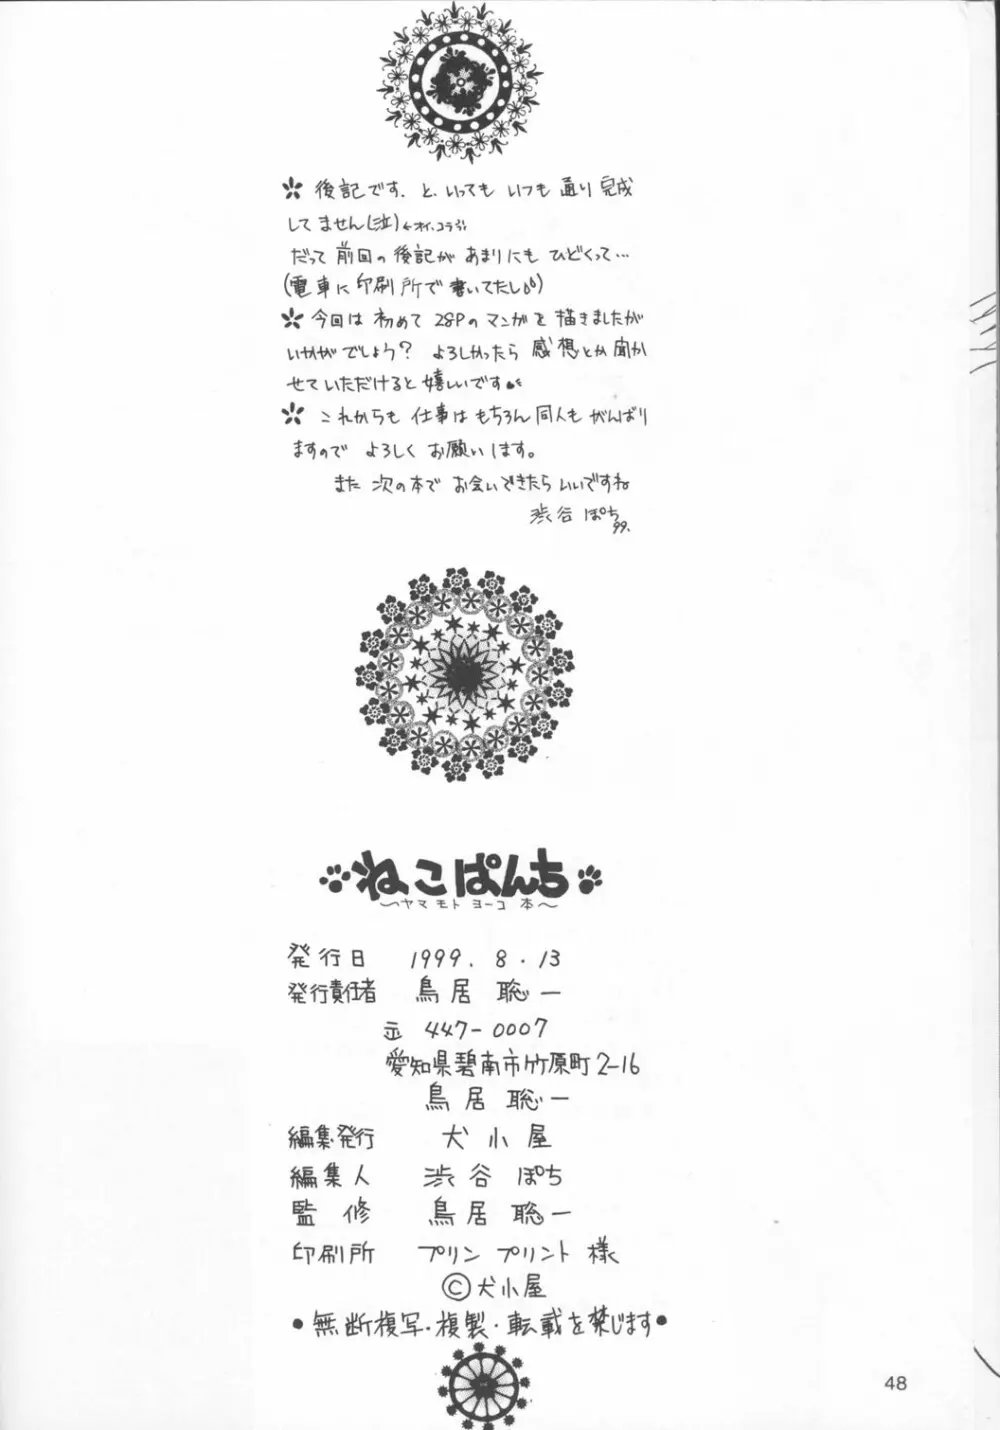 後記です. と、いっても いつも 通り 完成
してません(泣)←オイ、コラ!!
だって 前回の後記が あまりにも ひどくって…
(電車に印刷所で書いてたし)
今回は 初めて 28Pのマンガを 描きましたが
いかがでしょう? よろしかったら 感想とか聞か
せていただけると 嬉しいです。
これからも 仕事はもちろん同人も がんばり
ますので よろしく お願いします。
また 次の本で お会いできたら いいですね
渋谷 ぽち
99.
ねこぱんち
〜ヤマモト ヨーコ 本〜
発行日 1999. 8. 13
発行責任者 鳥居 聡一
〒 447-0007
愛知県碧南市竹原町2-16
鳥居 聡一
編集発行 犬小屋
編集人 渋谷 ぽち
監修 鳥居 聡一
印刷所 プリン プリント 様
©犬小屋
●無断複写・複製・転載を禁じます●
48